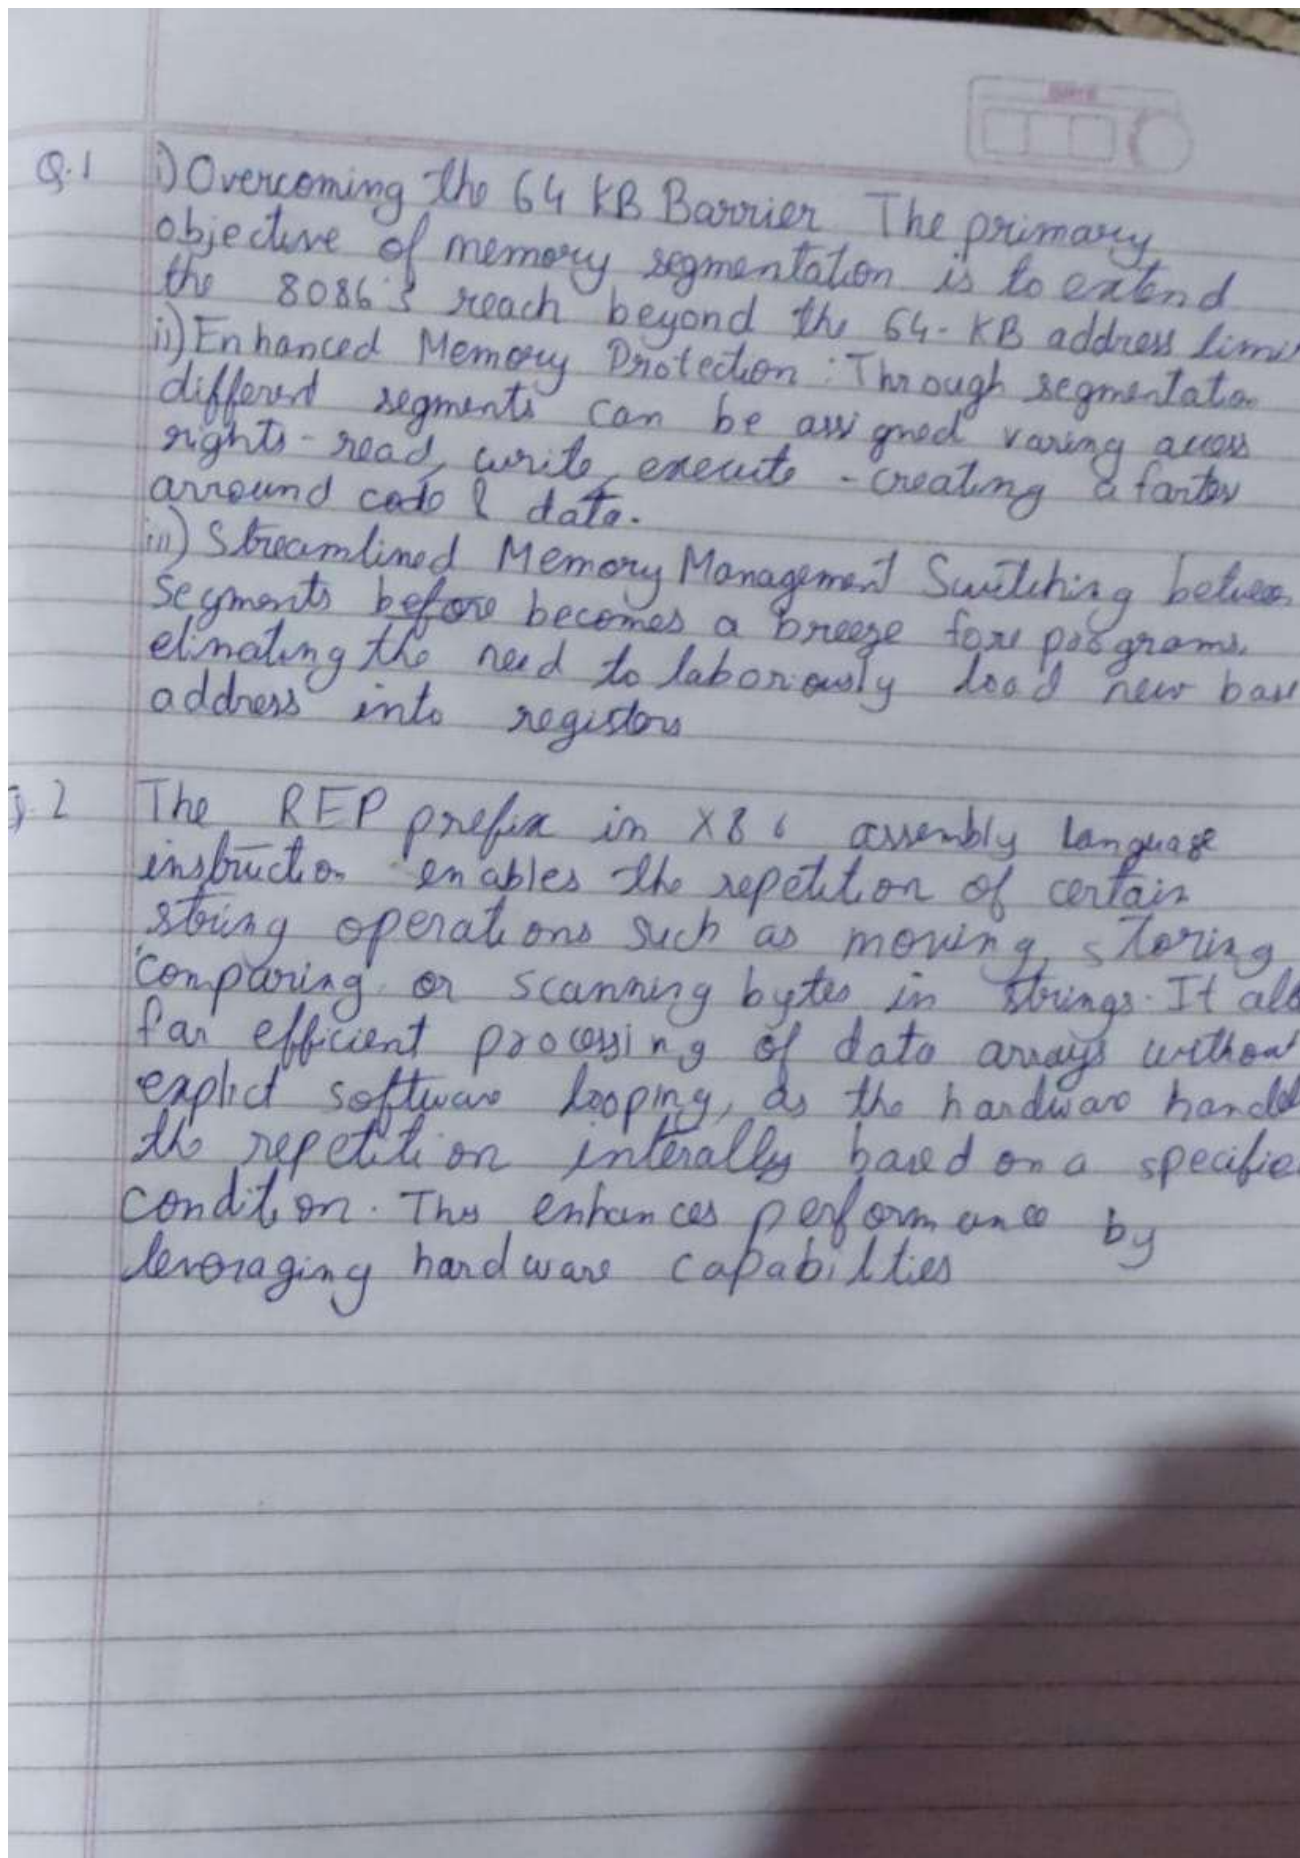 DATE
Q.1 i) Overcoming the 64 KB Barrier The primary
objective of memory segmentation is to extend
the 8086's reach beyond the 64-KB address limi
ii) Enhanced Memory Protection: Through segmentatio
different segments can be assigned varing access
rights - read, write, execute - creating a
arround code & data.
iii) Streamlined Memory Management Switching between
segments before becomes a breeze for programs.
elinating the need to laboriously load new base
address into registors
2 The REP prefix in X86 assembly language
instruction enables the repetition of certain
string operations such as moving, storing
comparing or scanning bytes in strings. It alo
far efficient processing of data arrays withou
explict software looping, as the hardware handl
the repetition interally based on a specifie
condition. This enhances performance by
leveraging hardware capabilties